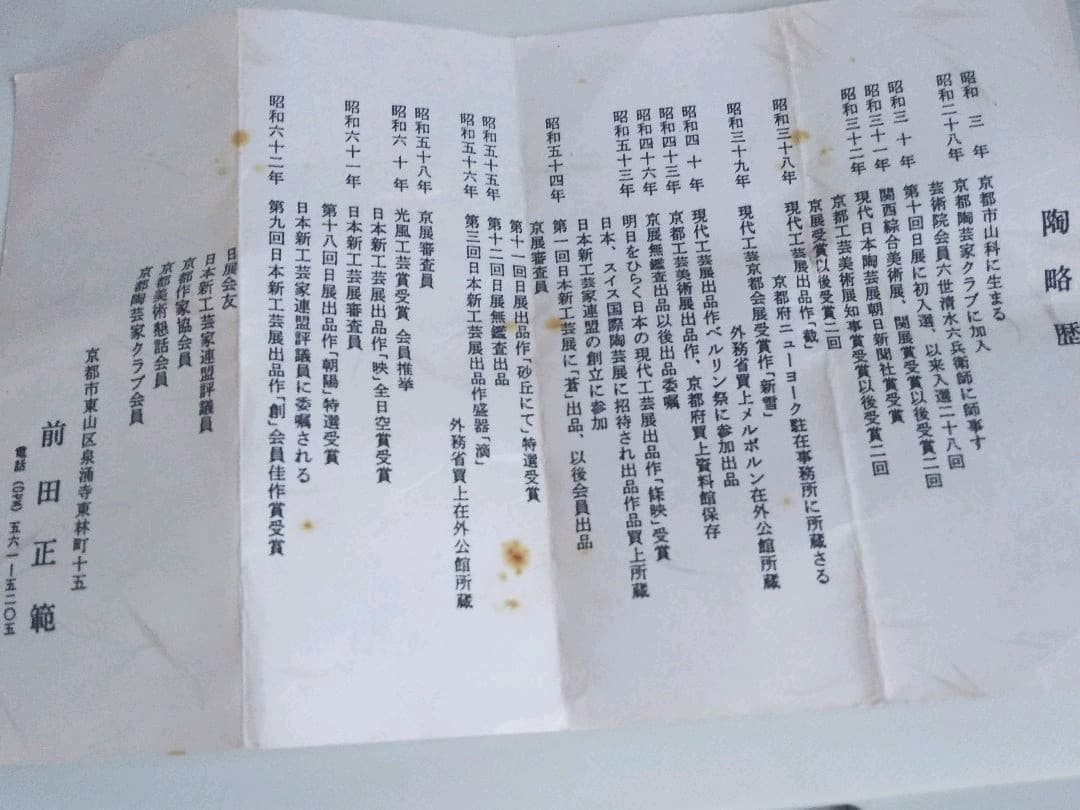 陶略歴
昭和三年 京都市山科に生まる
昭和二十八年 京都陶芸家クラブに加入
芸術院会員六世清水六兵衛師に師事す
昭和三十年 第十回日展に初入選、以来入選二十八回
昭和三十一年 関西綜合美術展、関展賞受賞以後受賞二回
昭和三十二年 現代日本陶芸展朝日新聞社賞受賞
京都工芸美術展知事賞受賞以後受賞二回
京展受賞以後受賞二回
昭和三十八年 現代工芸展出品作「戴」
京都府ニューヨーク駐在事務所に所蔵さる
昭和三十九年 現代工芸京都会展受賞作「新雪」
外務省買上メルボルン在外公館所蔵
昭和四十年 現代工芸展出品作ベルリン祭に参加出品
昭和四十三年 京都工芸美術展出品作、京都府買上資料館保存
昭和四十六年 京展無鑑査出品以後出品委嘱
昭和五十三年 明日をひらく日本の現代工芸展出品作「條映」受賞
日本、スイス国際陶芸展に招待され出品作品買上所蔵
日本新工芸家連盟の創立に参加
昭和五十四年 第一回日本新工芸展に「蒼」出品、以後会員出品
京展審査員
第十一回日展出品作「砂丘にて」特選受賞
昭和五十五年 第十二回日展無鑑査出品
昭和五十六年 第三回日本新工芸展出品作盛器「滴」
外務省買上在外公館所蔵
昭和五十八年 京展審査員
昭和六十年 光風工芸賞受賞 会員推挙
日本新工芸展出品作「映」全日空賞受賞
昭和六十一年 日本新工芸展審査員
第十八回日展出品作「朝陽」特選受賞
日本新工芸家連盟評議員に委嘱される
昭和六十二年 第九回日本新工芸展出品作「創」会員佳作賞受賞
日展会友
日本新工芸家連盟評議員
京都作家協会員
京都美術懇話会員
京都陶芸家クラブ会員
京都市東山区泉涌寺東林町十五
前田正範
電話(〇七五)五六一―五二〇五